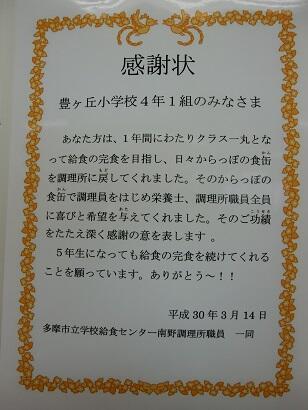 感謝状
豊ヶ丘小学校４年１組のみなさま
あなた方は、１年間にわたりクラス一丸とな
って給食の完食を目指し、日々からっぽの食缶
を調理所に戻してくれました。そのからっぽの
食缶で調理員をはじめ栄養士、調理所職員全員
に喜びと希望を与えてくれました。そのご功績
をたたえ深く感謝の意を表します 。
５年生になっても給食の完食を続けてくれる
ことを願っています。ありがとう～！！
平成30年３月14日
多摩市立学校給食センター南野調理所職員　一同